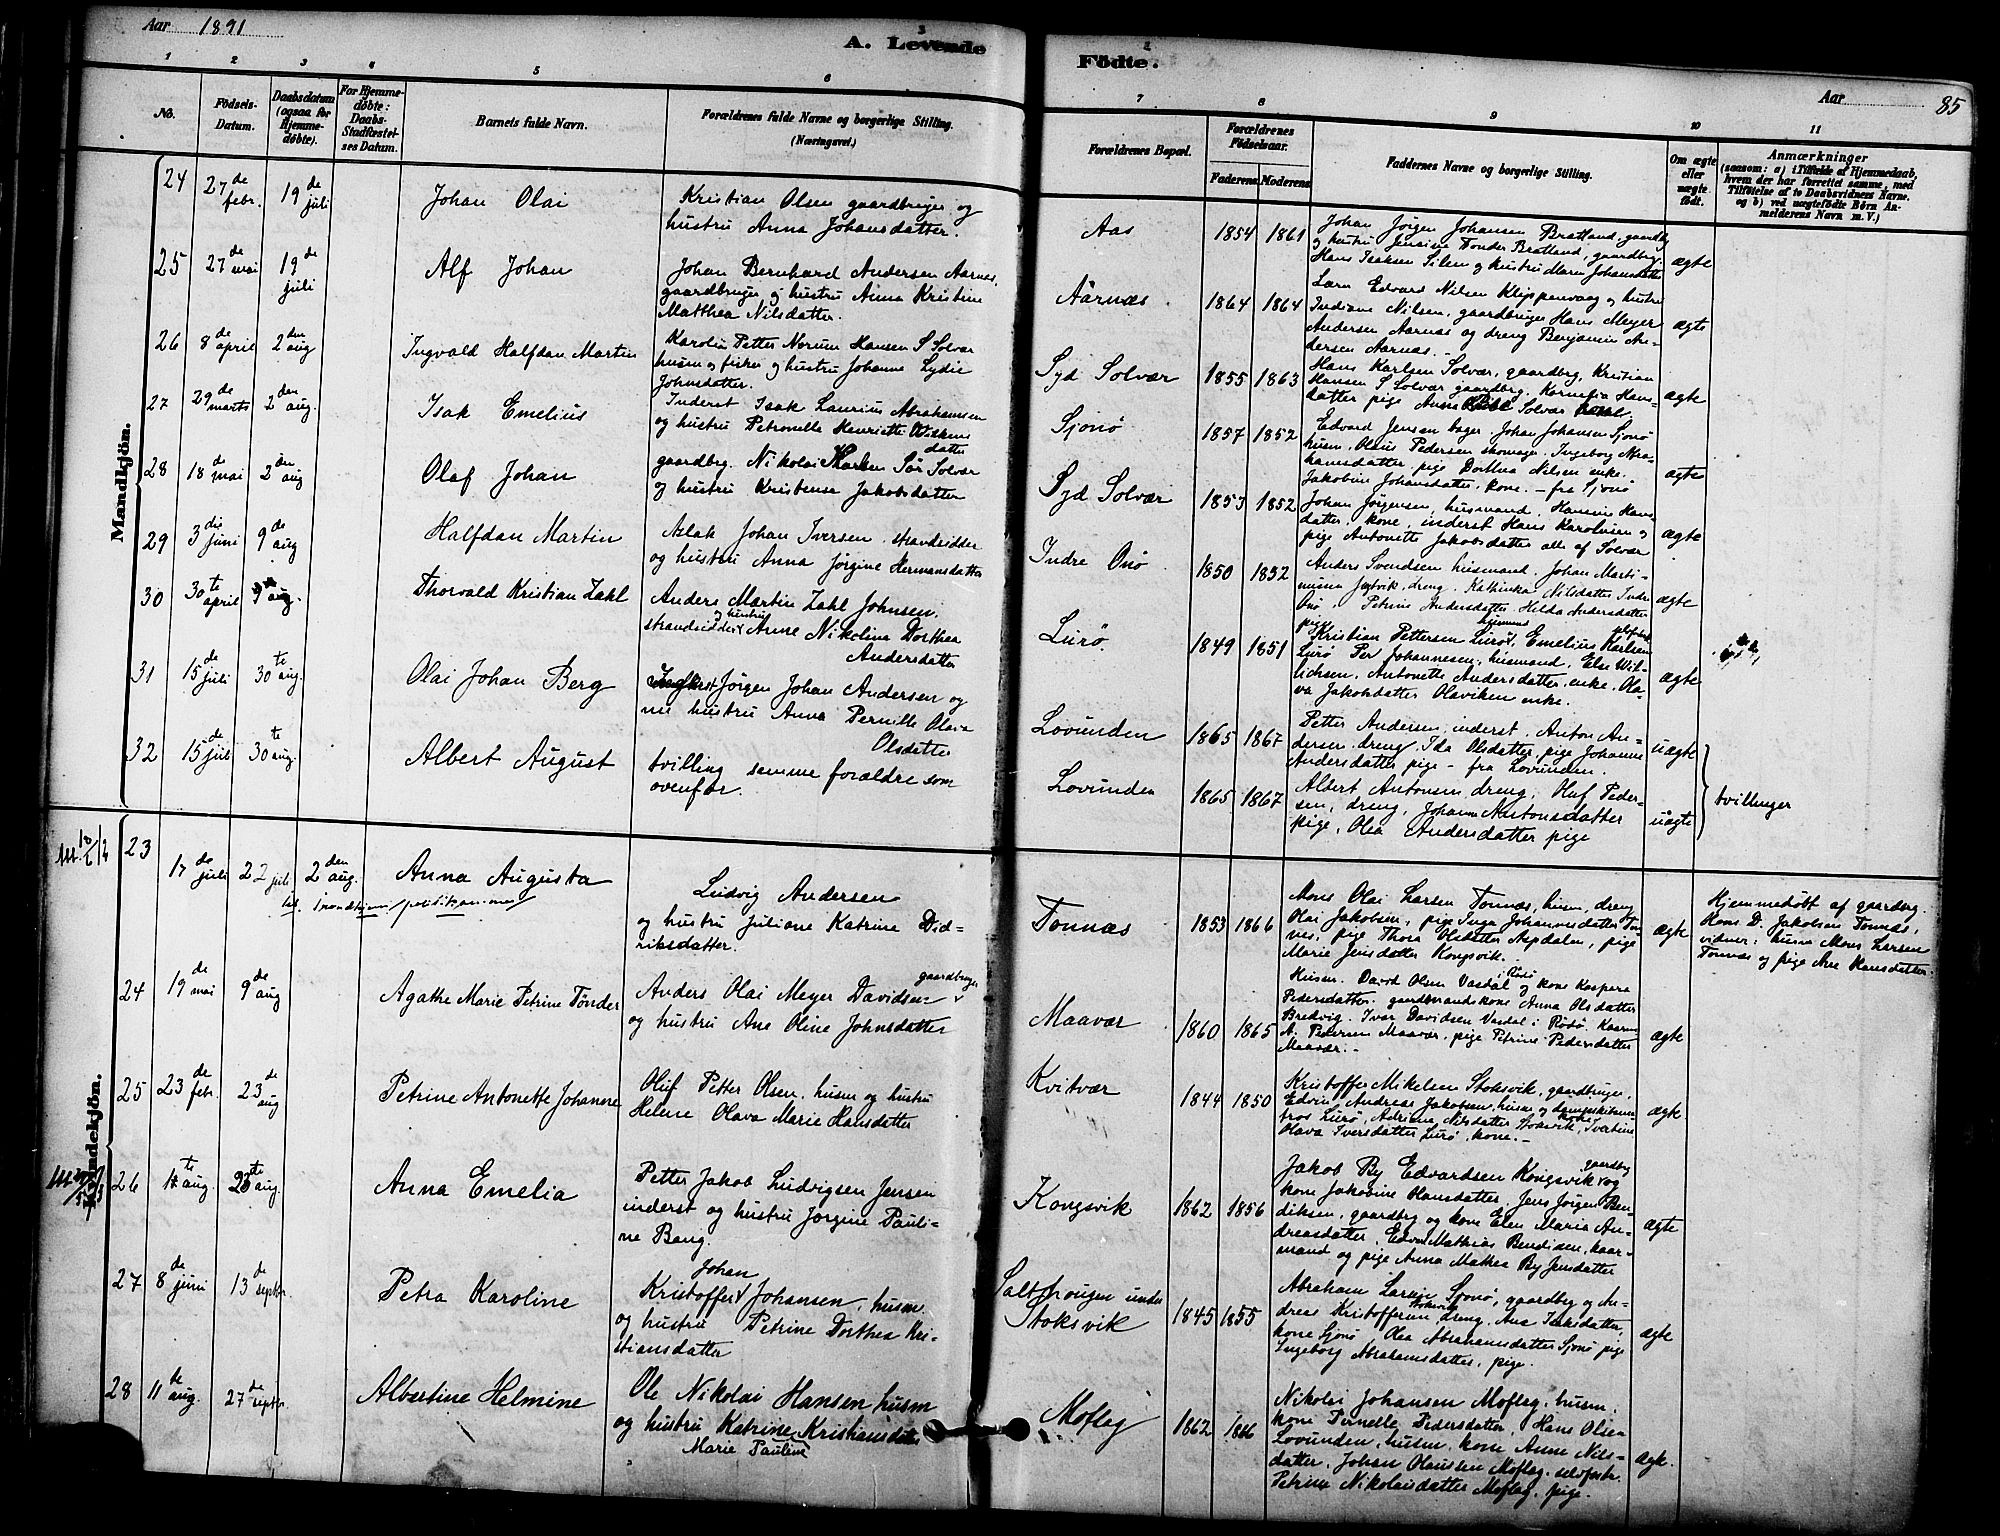 Aar 1891
A. Levende
Födte.
Aar
85
1 2 3 4 5 6
7 8 9 10 11
No.
Födsels-Datum.
Daabsdatum (ogsaa for Hjemme-døbte).
For Hjemme-døbte: Daabs-Stadfæstel-ses Datum.
Barnets fulde Navn.
Forældrenes fulde Navne og borgerlige Stilling. (Næringsvei.)
Forældrenes Bopæl.
Forældrenes Födselsaar.
Faderens. Moderens.
Faddernes Navne og borgerlige Stilling.
Om ægte eller uægte født.
Anmærkninger
(saasom: a) i Tilfælde af Hjemmedaab, hvem der har forrettet samme, med Tilføielse af to Daabsvidners Navne. og b) ved uægtefödte Börn An-melderens Navn m. V.)
Mandkjön.
24 27de febr. 19de juli
Johan Olai
Kristian Olsen gaardbruger og
hustru Anna Johansdatter.
Aas
1854 1861
Johan Jörgen Johansen Bratland, gaardbr
og hustru Jensine Tonder Bratland, gaardbrg.
Hans Isaksen Silen og hustru Maren Johansdatter
ægte
25 27de mai 19de juli
Alf Johan
Johan Bernhard Andersen Aarnæs,
gaardbruger og hustru Anna Kristine
Matthea Nilsdatter.
Aarnæs
1864 1864
Edvard Nilsen Klippenvaag og hustru
Indiane Nilsen, gaardbruger Hans Meyer
Andersen Aarnæs og dreng Benjamin An-
dersen Aarnæs.
ægte
26 8de april 2den aug
Ingvald Halfdan Martin
Karolin Petter Norum Hansen S Solvær
husm og fisker og hustru Johanne Lydie
Johnsdatter.
Syd Solvær
1855 1863
Hans Karlsen Solvær, gaardbrg, Kristian
Hansen S Solvær gaardbrg, Kornelia Hans-
datter pige Anna Solvær
ægte
27 29de marts 2den aug.
Isak Emelius
Inderst Isak Laurius Abrahamsen
og hustru Petronelle Henriette
datter
Sjonø
1857 1852
Edvard Jensen Johan Johansen Sjonø
husm. Olaus Pedersen skomager. Ingeborg Abra-
hamsdatter, pige Dorthea Nilsen enke.
Jakobine Johansdatter, kone. - fra Sjonø
ægte
28 18de mai 2den aug
Olaf Johan
gaardbrg. Nikolai Karlsen Sör Solvær
og hustru Kristense Jakobsdatter
Syd Solvær
1853 1852
Johan Jörgensen, husmand, Hansine Hans
datter, kone, inderst Hans Karolsen og
pige Antonette Jakobsdatter alle af Solvær
ægte
29 3die juni 9de aug
Halfdan Martin
Aslak Johan Iversen, strandsidder
og hustru Anna Jørgine Hermansdatter
Indre Onø
1850 1852
Anders Svendsen husmand. Johan Marti-
dreng. Kathinka Nilsdatter Indre
Onø, Petrine Andersdatter, Hilda Andersdatter
pige
ægte
30 30te april 9 aug.
Thorvald Kristian Zahl
Anders Martin Zahl Johnsen.
og hustru
strandsidder Anne Nikolina Dorthea
Andersdatter
Lurø
1849 1851
Kristian Pettersen Lurø, Emelius Karlsen
Lurø Per Johannesen, husmand, Else Wil-
lichsen, Antonette Andersdatter, enke, Ola-
va Jakobsdatter Olaviken enke.
ægte
31 15de juli 30te aug.
Olai Johan Berg
Jørgen Johan Andersen og
hustru Anna Pernille Olava
Olsdatter
Lovunden
1865 1867
Petter Andersen, inderst, Anton An-
dersen, dreng, Ida Olsdatter, pige Johanne
Andersdatter pige - fra Lovunden.
uægte
32 15de juli 30te aug.
Albert August
tvilling samme forældre som
ovenfor.
Lovunden
1865 1867
Albert Antonsen, dreng, Oluf Peder-
sen, dreng, Johanna Antonsdatter
pige, Olea Andersdatter pige
uægte
tvillinger
Kvindekjön.
23 17de juli 22 juli 2den aug.
Anna Augusta
Ludvig Andersen
og hustru Juliane Katrine Did-
riksdatter.
Tonnæs
1853 1866
Mons Olai Larsen Tonnæs, husm, dreng
Olai Jakobsen, pige Inga Johannesdatter Ton-
nes, pige Thora Olsdatter Aspdalen, pige
Marie Jensdatter Kongsvik.
ægte
Hjemmedøbt af gaardbrg.
Hans D. Jakobsen Tonnæs,
vidner: husm Mons Larsen
Tonnæs og pige Ane Hansdatter.
24 19de mai 9de aug
Agathe Marie Petrine Tønder
gaardbruger
Anders Olai Meyer Davidsen
og hustru Ane Oline Johnsdatter
Maavær
1860 1865
Husm. David Olsen Vasdal i Rödö og kone Kaspara
Pedersdatter. gaardmandskone Anna Olsdatter
Bredvig. Ivar Davidsen Vasdal i Rödö.
Pedersen Maavær, pige Petrine Pedersdatter
Maavær.
ægte
25 23de febr. 23de aug
Petrine Antonette Johanne
Oluf Petter Olsen, husm og hustru
Helene Olava Marie Hansdatter
Kvitvær
1844 1850
Kristoffer Mikelsen Stoksvik, gaardbruger,
Edvin Andreas Jakobsen, husm og
Lurø, Adriane Nilsdatter Stoksvik, kone, Ivertine
Olava Iversdatter Lurø, kone.
ægte
26 aug. 23te aug.
Anna Emelia
Petter Jakob Ludvigsen Jensen
inderst og hustru Jørgine Pauli-
ne Bang.
Kongsvik
1862 1856
gaardbrg
Jakob By Edvardsen Kongsvik og
kone Jakobine Hansdatter, Jens Jörgen Ben-
diksen, gaardbrg og kone Elen Maria An-
dreasdatter, Edvard Mathias Bendiksen, kaar-
mand og pige Anna Mathea By Jensdatter
ægte
27 8de juni 13de septbr.
Petra Karoline
Johan
Kristoffer Johansen, husm.
og hustru Petrine Dorthea Kri-
stiansdatter
under
Stoksvik
1845 1855
Abraham Larsen Sjonø, gaardbrg og An-
dreas Kristoffersen Stoksvik dreng, Ane Isaksdatter,
kone Sjonø, Olea Abrahamsdatter Sjonø pige
Ingeborg Abrahamsdatter, pige.
ægte
28 11te aug. 27de septbr.
Albertine Helmine
Ole Nikolai Hansen husm
og hustru Katrine Kristiansdatter
Marie Pauline
Moflag
1862 1866
Nikolai Johansen Moflag, husm.
kone Pernelle Pedersdatter, Hans Olsen
Lovunden, husm, kone Anne Nils-
datter, Johan Olaussen Moflag, selvforsr.
Petrine Nikolaisdatter Moflag, pige.
ægte.